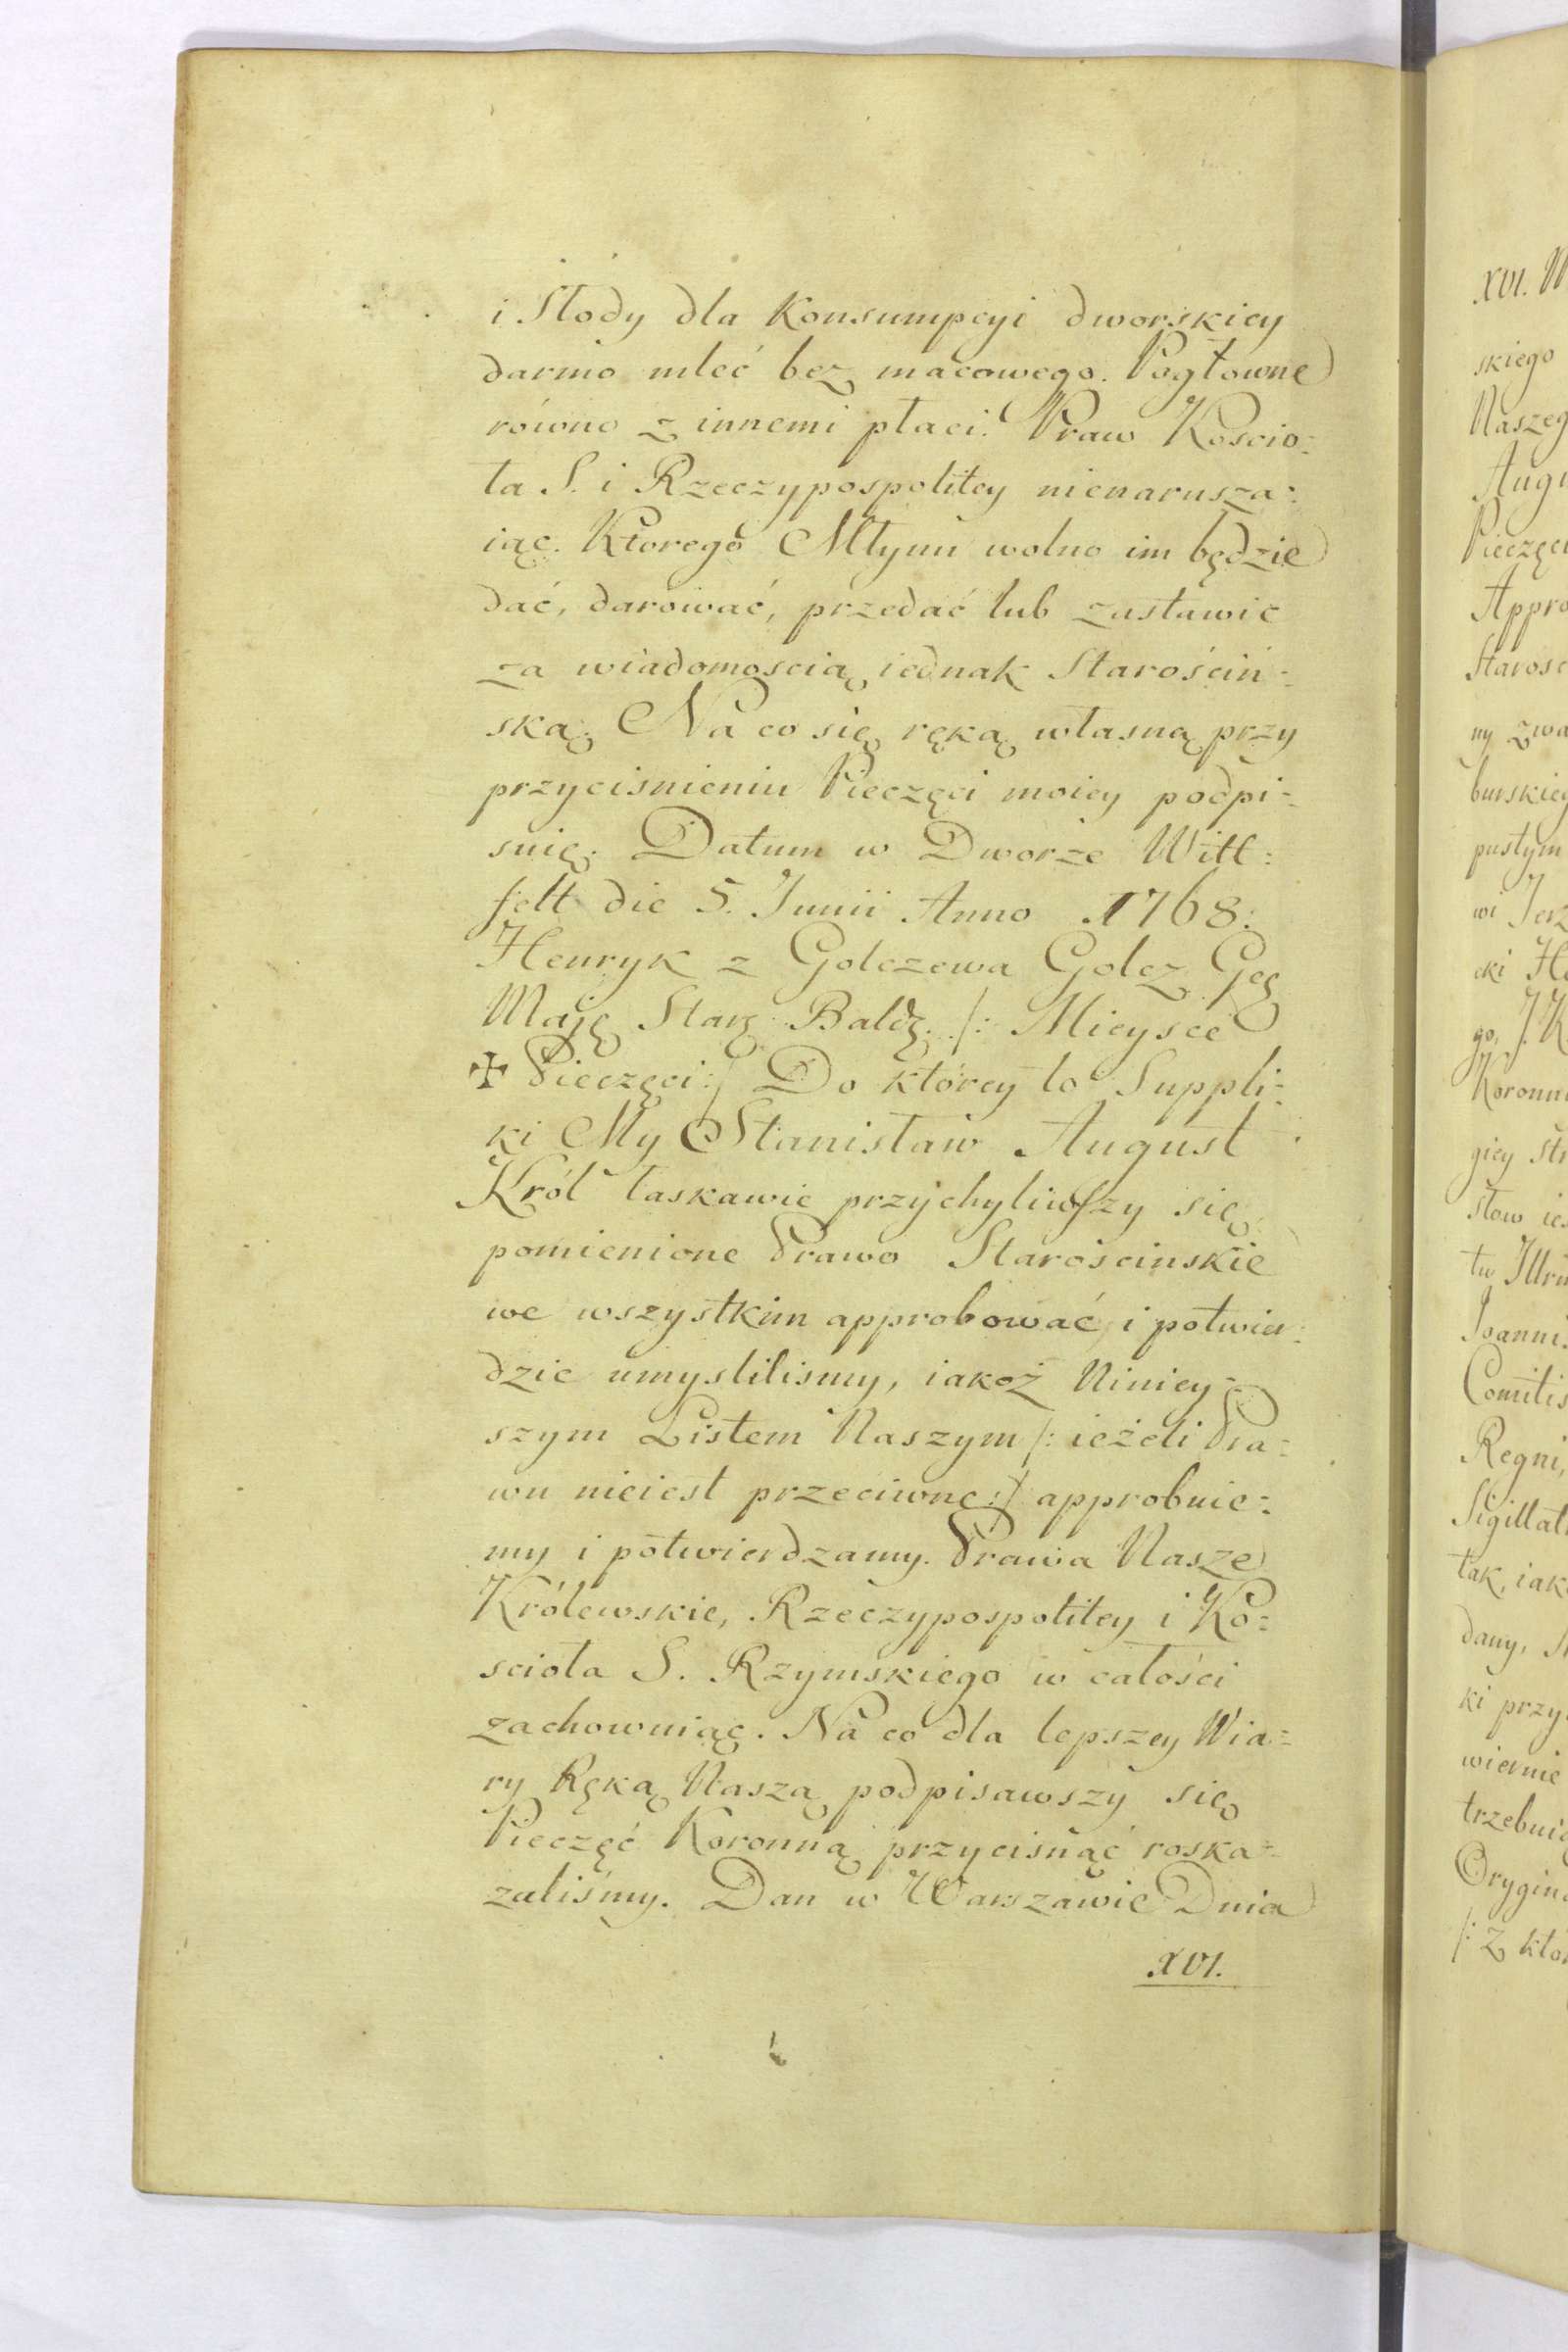 i Słody dla Konsumpcyi dworskiey
darmo mleć bez macowego. Pogłowne
równo z innemi płaci. Praw Koscio:
ła S. i Rzeczypospolitey nienarusza:
iąc. Ktorego Młynu wolno im będzie
dać, darować, przedać lub zastawic
za wiadomoscią iednak Starościń:
ską. Na co się ręką własną przy
przycisnieniu Pieczęci moiey podpi:
suię. Datum w Dworze Witt:
felt die 5. Junii Anno 1768.
Henryk z Golczewa Golcz Geg
Maję Starę Baldę. /: Mieysce
✠ Pieczęci :/ Do którey to Suppli:
ki My Stanisław August
Król łaskawie przychyliwszy się
pomienione Prawo Starościnskie
we wszystkim approbować i potwier:
dzic umyslilismy, iakoż Niniey:
szym Listem Naszym /: ieżeli Pra:
wu nieiest przeciwne :/ approbuie:
my i potwierdzamy. Prawa Nasze
Królewskie, Rzeczypospolitey i Ko:
scioła S. Rzymskiego w całości
zachowuiąc. Na co dla lepszey Wia:
ry Ręką Naszą podpisawszy się
Pieczęć Koronną przycisnąć roska:
zaliśmy. Dan w Warszawie Dnia
XVI.
XVI.
skiego
Naszeg
Augu
Pieczęci
Appro
Starosc
ny zwa
burskiey
pustym
wi Jerz
cki
go,
Koronn
giey
słow ies
tu
Joannis
Comitis
Regni,
Sigillat
tak, iak
dany,
ki przy
wiernie
trzebuią
Orygin
/: Z kto